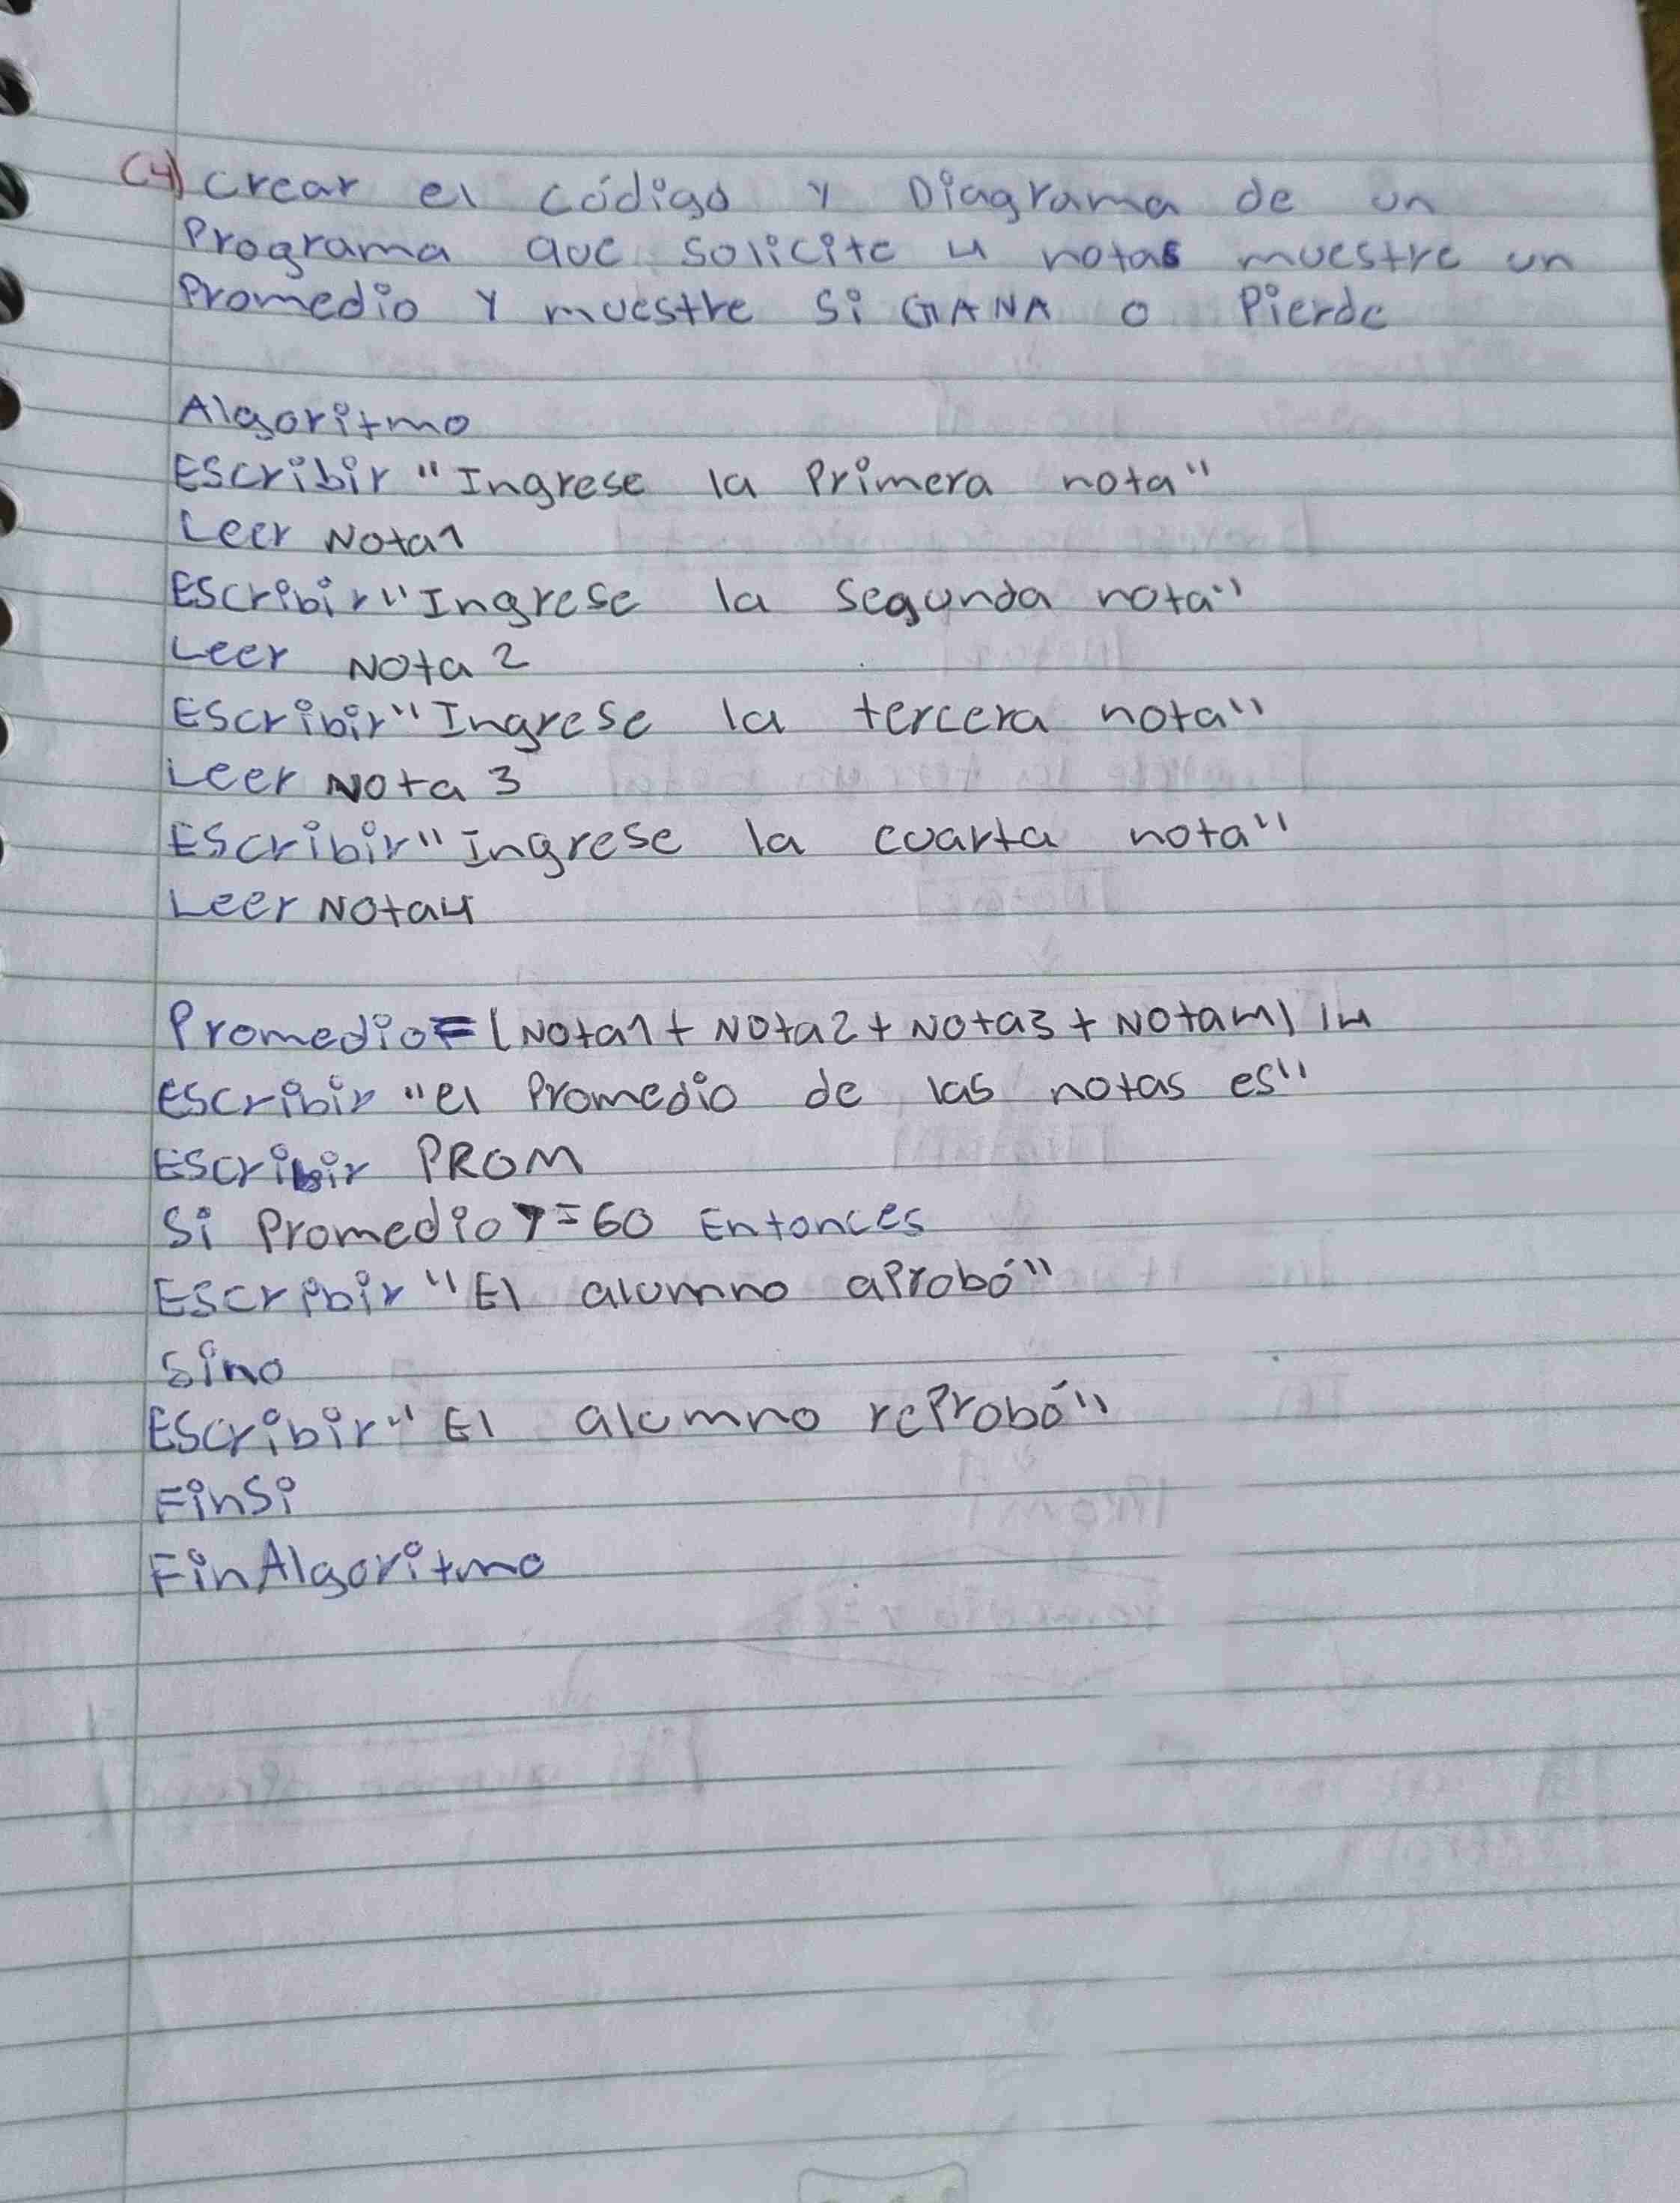 (4) Crear el código y Diagrama de un
Programa que solicite 4 notas muestre un
Promedio y muestre si GANA o Pierde
Algoritmo
Escribir "Ingrese la Primera nota"
Leer Nota1
Escribir "Ingrese la segunda nota"
Leer Nota 2
Escribir "Ingrese la tercera nota"
Leer Nota 3
Escribir "Ingrese la cuarta nota"
Leer Nota4
Promedio = (Nota1 + Nota2 + Nota3 + Nota4) / 4
Escribir "el Promedio de las notas es"
Escribir PROM
Si Promedio >= 60 Entonces
Escribir "El alumno aprobó"
Sino
Escribir "El alumno reprobó"
FinSi
FinAlgoritmo